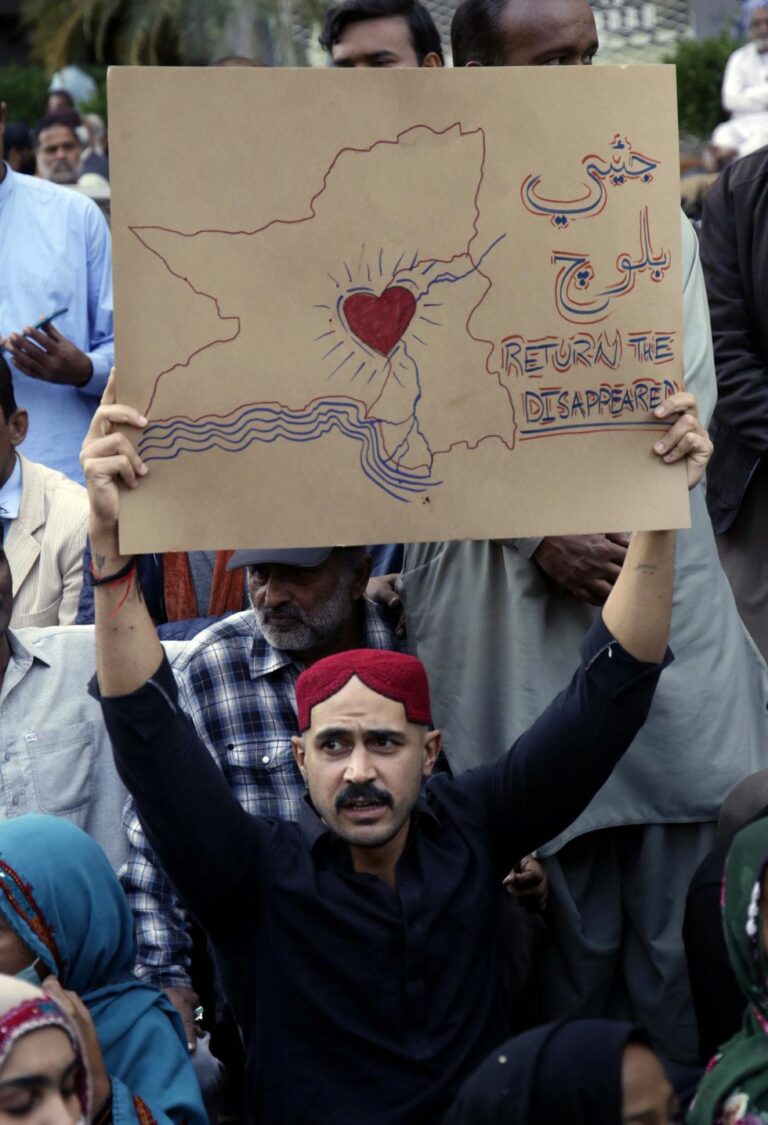 جيئي
بلوچ
RETURN THE
DISAPPEARED